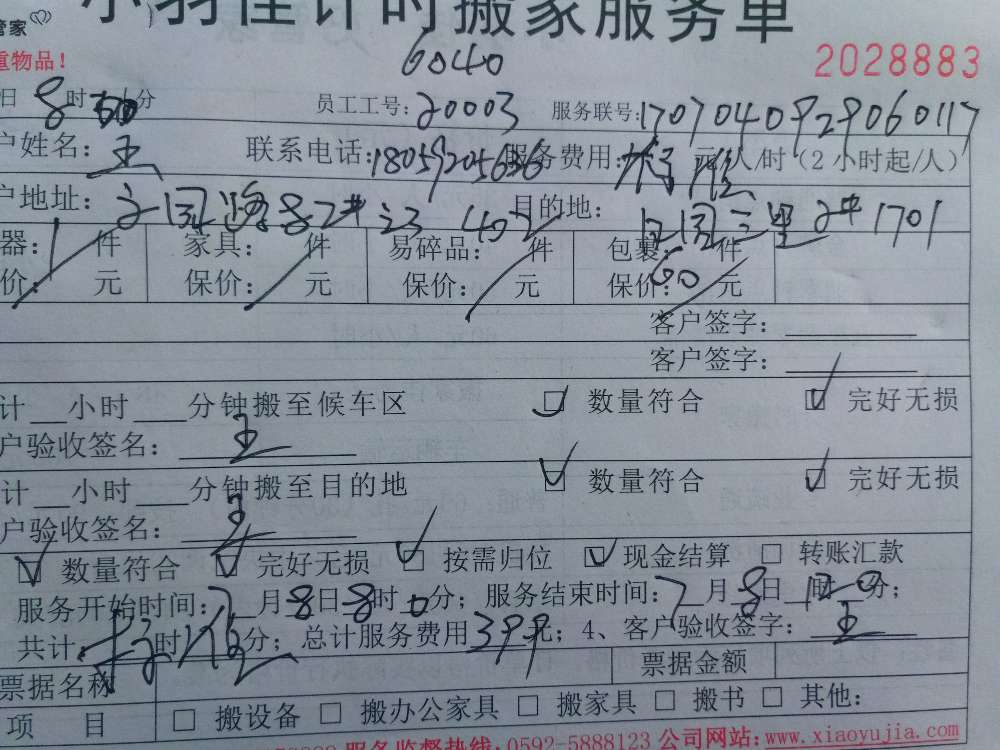 小羽佳计时搬家服务单
管家
重物品！
6040
2028883
日8时 分 员工工号：20003 服务联号：1707040929060117
户姓名：王 联系电话：18059205636 服务费用： 元/人/时（2小时起/人）
户地址： 402 目的地： 2# 1701
器： 件 家具： 件 易碎品： 件 包裹： 件
价： 元 保价： 元 保价： 元 保价：60 元
客户签字：
客户签字：
计 小时 分钟搬至候车区 ☑ 数量符合 ☑ 完好无损
户验收签名：王
计 小时 分钟搬至目的地 ☑ 数量符合 ☑ 完好无损
户验收签名：王
☑ 数量符合 ☑ 完好无损 ☑ 按需归位 ☑ 现金结算 □ 转账汇款
服务开始时间：7月8日8时0分；服务结束时间：7月8日 分；
共计 时 分；总计服务费用 元；4、客户验收签字：王
票据名称 票据金额
项 目 □ 搬设备 □ 搬办公家具 □ 搬家具 □ 搬书 □ 其他：
服务监督热线：0592-5888123 公司网站：www.xiaoyujia.com